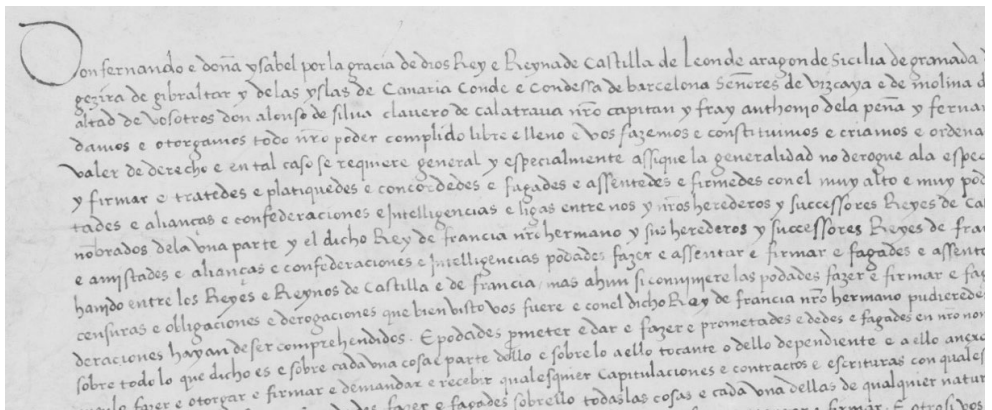 Don fernando e doña ysabel por la gracia de dios Rey e Reyna de Castilla de Leon de aragon de Sicilia de granada d
gezira de gibraltar y delas yslas de Canaria Conde e Condessa de barcelona Señores de vizcaya e de molina d
altad de vosotros don alonso de silua clauero de calatraua nro capitan y fray anthonio dela peña y fernan
damos e otorgamos todo nro poder complido libre e lleno e vos fazemos e constituimos e criamos e ordena
valer de derecho e en tal caso se requiere general y especialmente assi que la generalidad no derogue ala espec
y firmar e tratedes e platiquedes e concordedes e fagades e assentedes e firmedes con el muy alto e muy pod
tades e alianças e confederaciones e Intelligencias e ligas entre nos y nros herederos y successores Reyes de Cas
nobrados dela vna parte y el dicho Rey de francia nro hermano y sus herederos y successores Reyes de fran
e amistades e alianças e confederaciones e Intelligencias podades fazer e assentar e firmar e fagades e assente
hauido entre los Reyes e Reynos de Castilla e de francia, mas ahun si conuiniere las podades fazer e firmar e fag
censuras e obligaciones e derogaciones que bien visto vos fuere e con el dicho Rey de francia nro hermano pudieredes
deraciones hayan de ser comprehendidos. E podades pmeter e dar e fazer e prometades e dedes e fagades en nro nom
sobre todo lo que dicho es e sobre cada vna cosa e parte dello e sobre lo a ello tocante o dello dependiente e a ello anexo
fazer e otorgar e firmar e demandar e recebir qualesquier Capitulaciones e contractos e escrituras con quales
fazer e fagades sobrello todas las cosas e cada vna dellas de qualquier natur
firmar. E otrosi vos